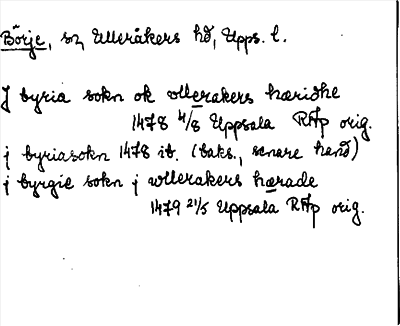 Börje, sn, Ulleråkers hd, Upps. l.
J byria sokn ok vllerakers hæridhe
1478 4/8 Uppsala RAp orig.
j byriasokn 1478 ib. (baks., senare hand)
j byrgie sokn j wllerakers hærade
1479 21/5 Uppsala RAp orig.